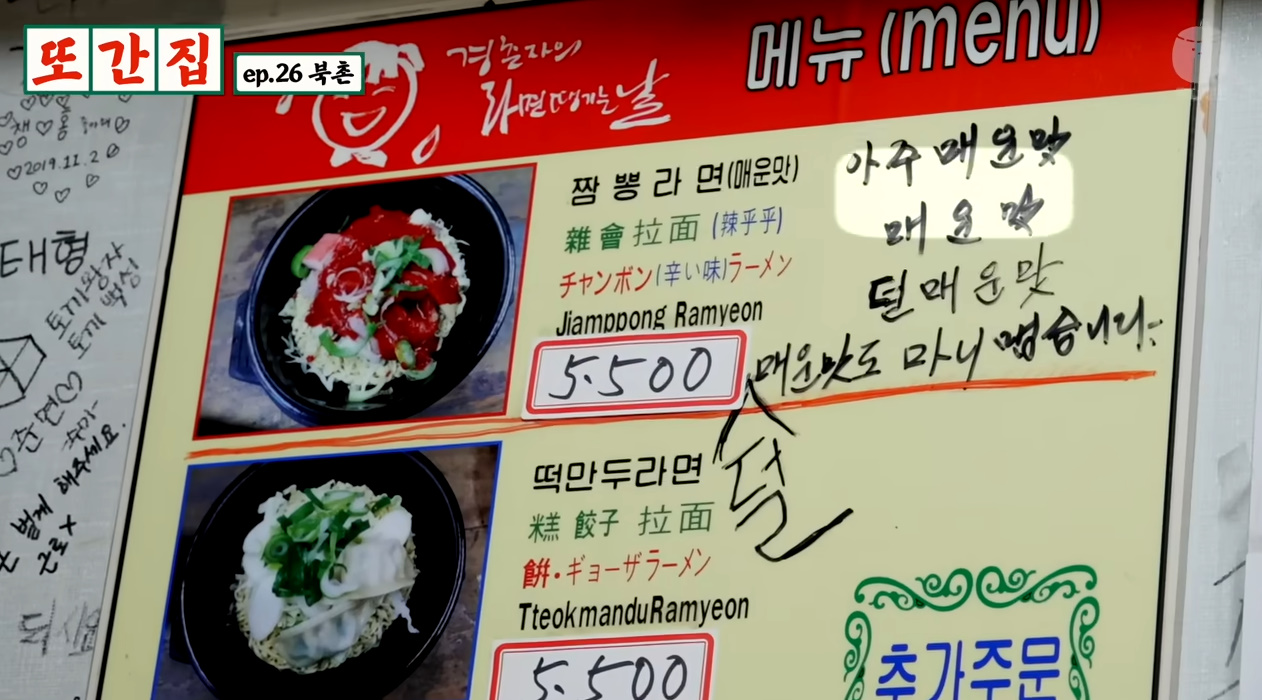 또간집
ep.26 북촌
경춘자의
라면땡기는날
메뉴(menu)
짬뽕라면(매운맛)
雜會拉面(辣乎乎)
チャンポン(辛い味)ラーメン
Jjamppong Ramyeon
5.500
아주매운맛
매운맛
덜매운맛
덜
매운맛도 마니 맵습니다.
떡만두라면
糕餃子拉面
餠・ギョーザラーメン
TteokmanduRamyeon
5.500
추가주문
2019.11.2
태형
토끼왕자
토끼
해주세요.